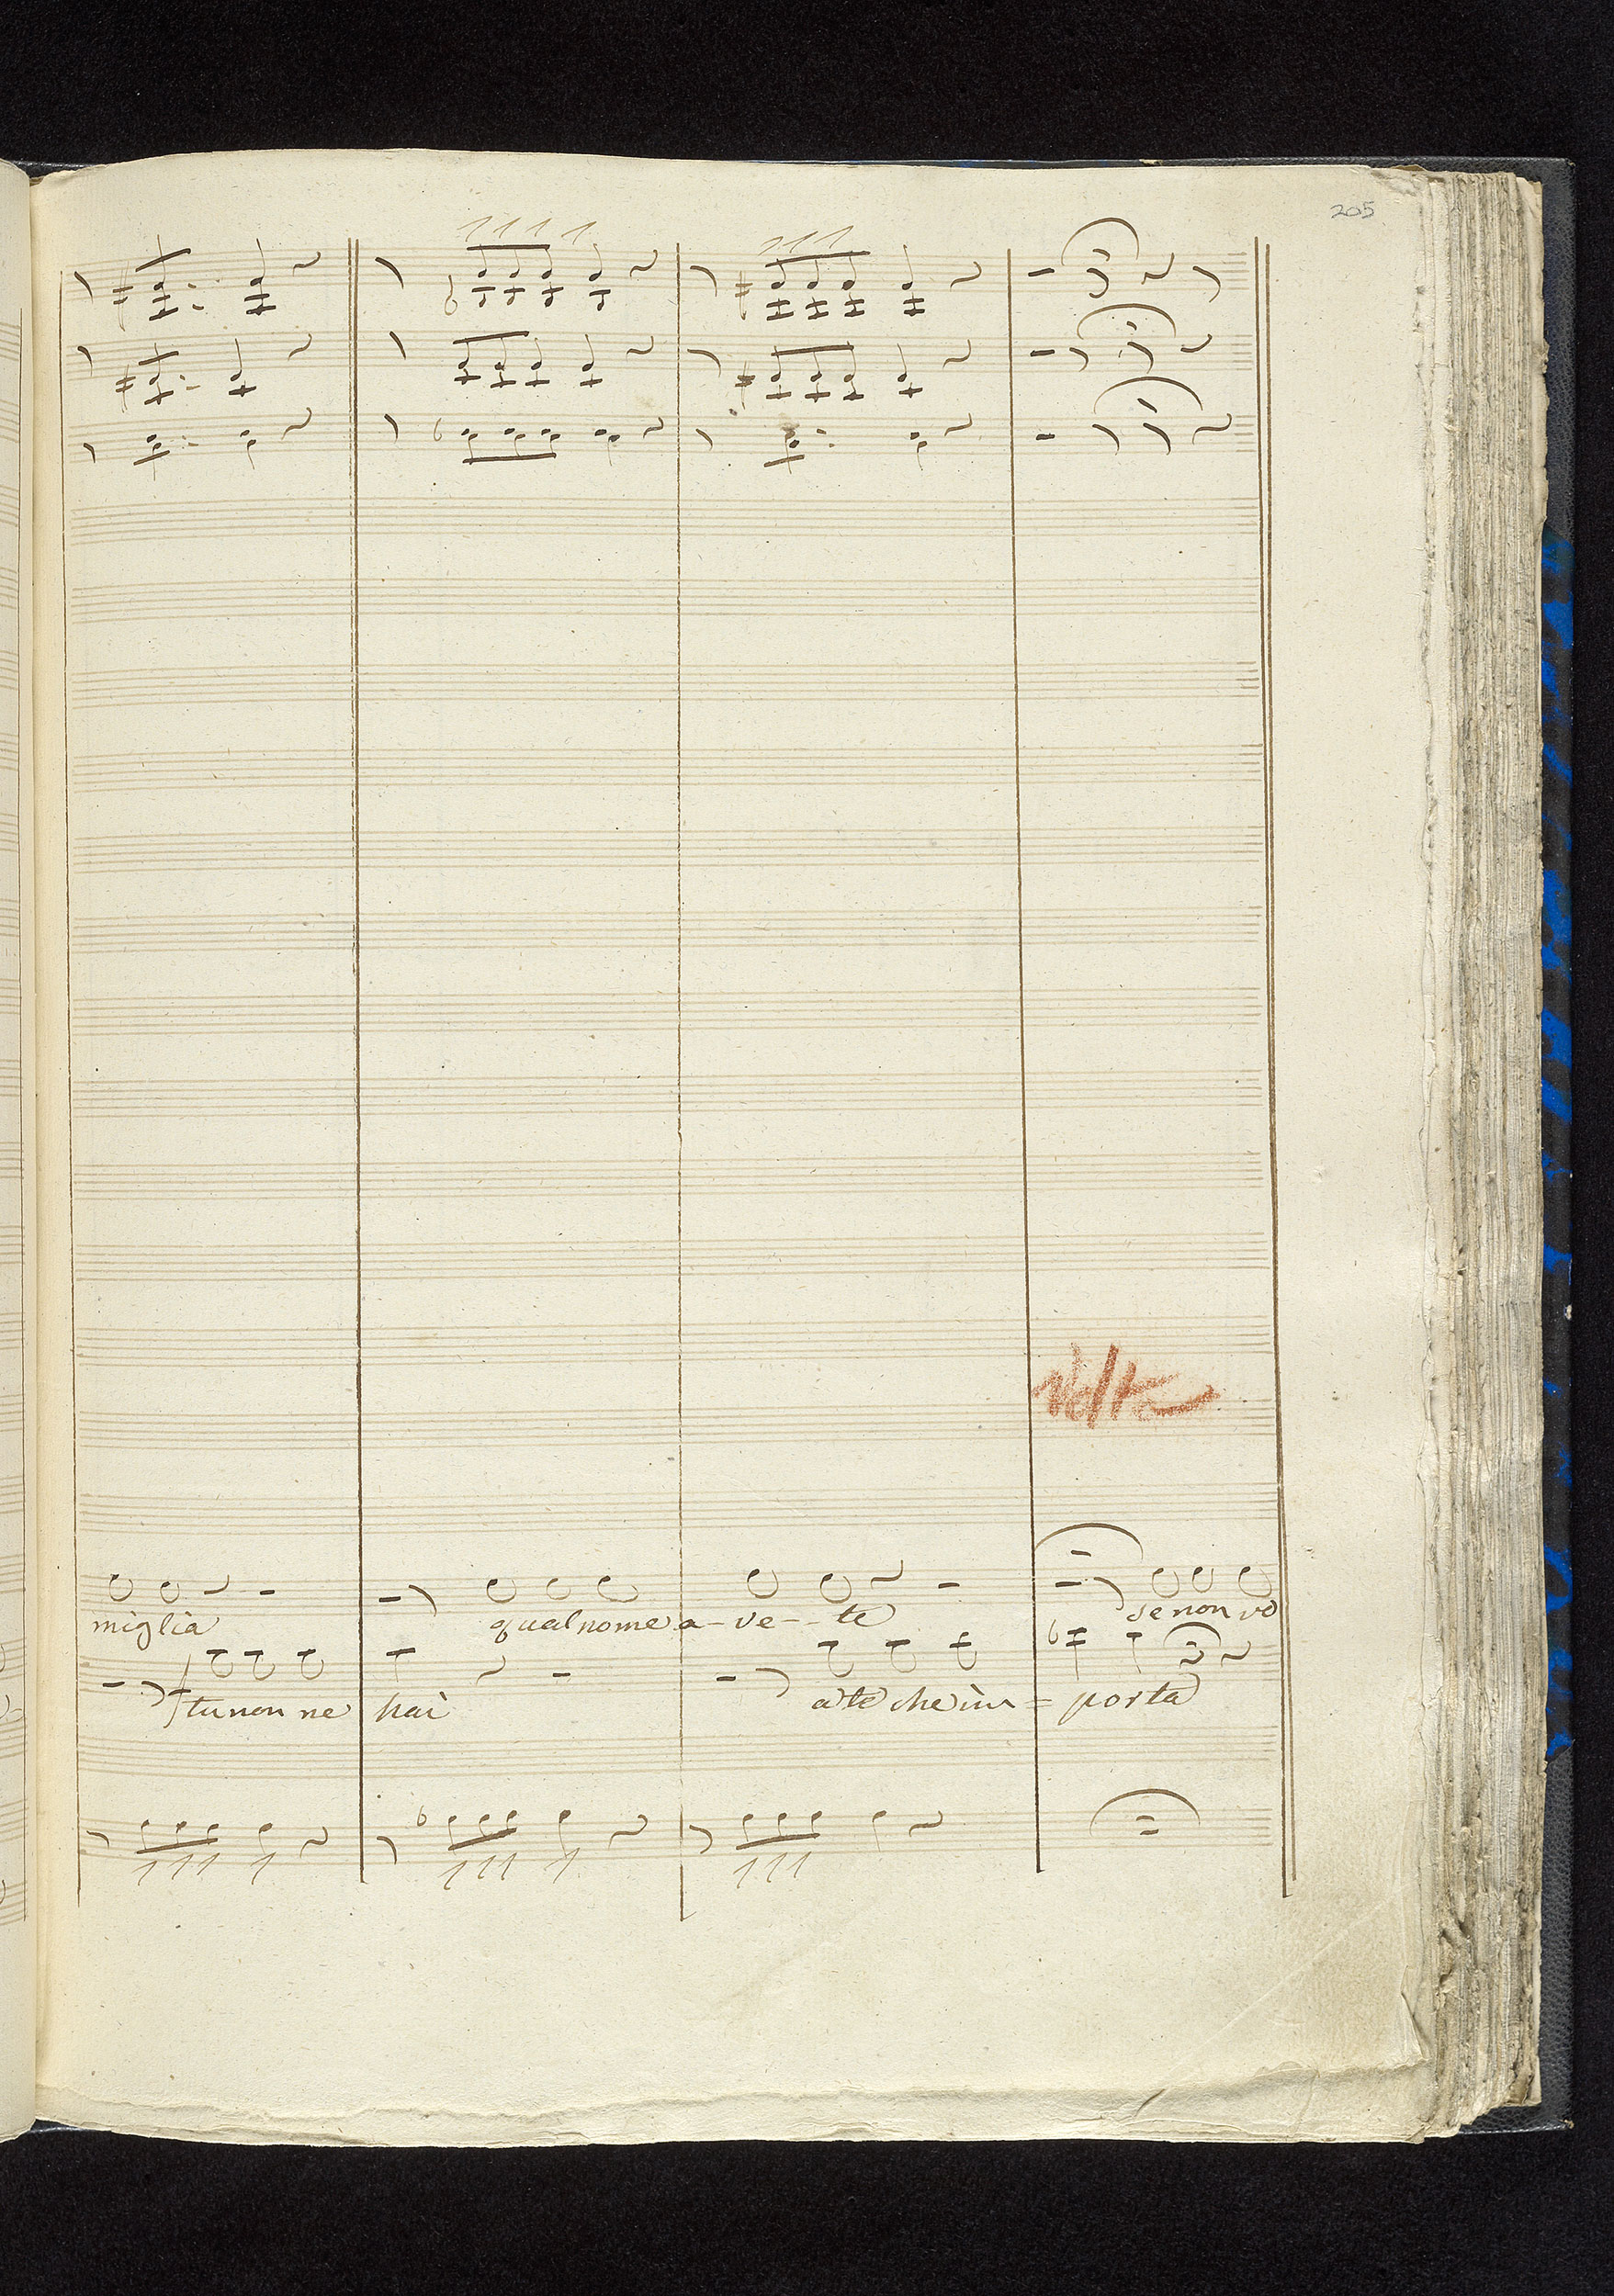 205
Volta
miglia qual nome a-ve--te se non vo
tu non ne hai a te che im = porta